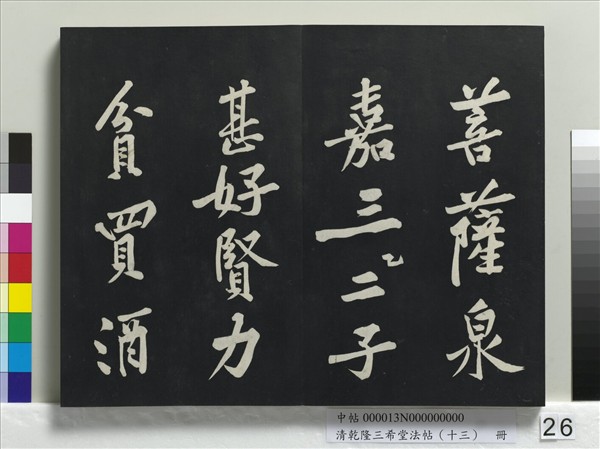 菩薩泉
嘉三乙二子
甚好賢力
貧買酒
中帖 000013N000000000
清乾隆三希堂法帖（十三） 冊
26